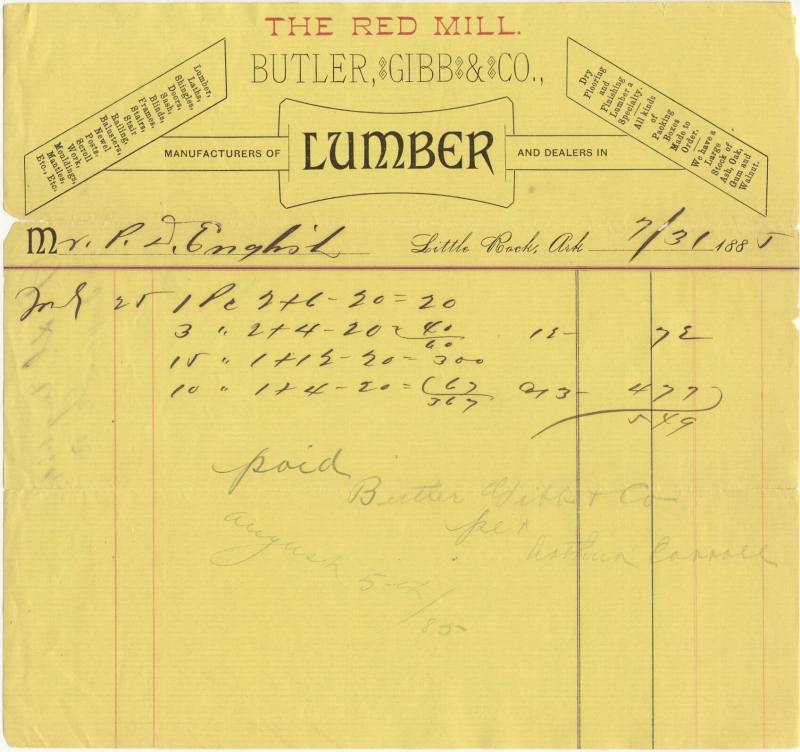 THE RED MILL.
BUTLER, GIBB & CO.,
Lumber,
Laths,
Shingles,
Doors,
Sash,
Blinds,
Frames,
Stairs,
Stair
Railing,
Balusters,
Newel
Posts,
Scroll
Work,
Mouldings,
Mantles,
Etc., Etc.
MANUFACTURERS OF LUMBER AND DEALERS IN
Dry
Flooring
and
Finishing
Lumber a
Specialty.
All kinds
of
Packing
Boxes
Made to
Order.
We have a
Large
Stock of
Ash, Oak,
Gum and
Walnut.
Mr. P. D. English Little Rock, Ark 7/31 1885
July 25 1 Pc 2+6-20=20
3 " 2+4-20=40 12- 72
60
15 " 1+12-20=300
10 " 1+4-20=67 13- 477
367
549
paid
Butler Gibb & Co
per
Arthur Carroll
August 5th/85